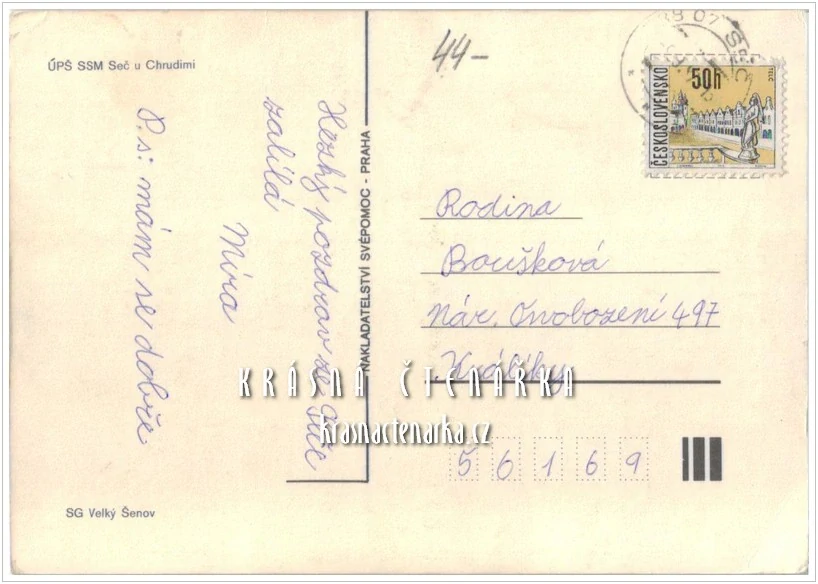 ÚPŠ SSM Seč u Chrudimi
44-
SEČ
ČESKOSLOVENSKO
50h
TELČ
Hezký pozdrav ze Seče
zalílá
Míra
P.s: mám se dobře
NAKLADATELSTVÍ SVÉPOMOC - PRAHA
Rodina
Boušková
Nár. Osvobození 497
Králíky
56169
KRÁSNÁ ČTENÁRKA
krasnactenarka.cz
SG Velký Šenov